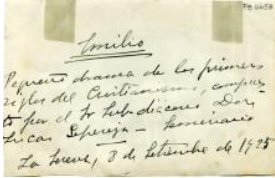 Emilio
Pequeño drama de los primeros
siglos del Cristianismo, compues-
to por el Sr Subdiácono Don
Lucas – Seminario
La Serena, 8 de Setiembre de 1925